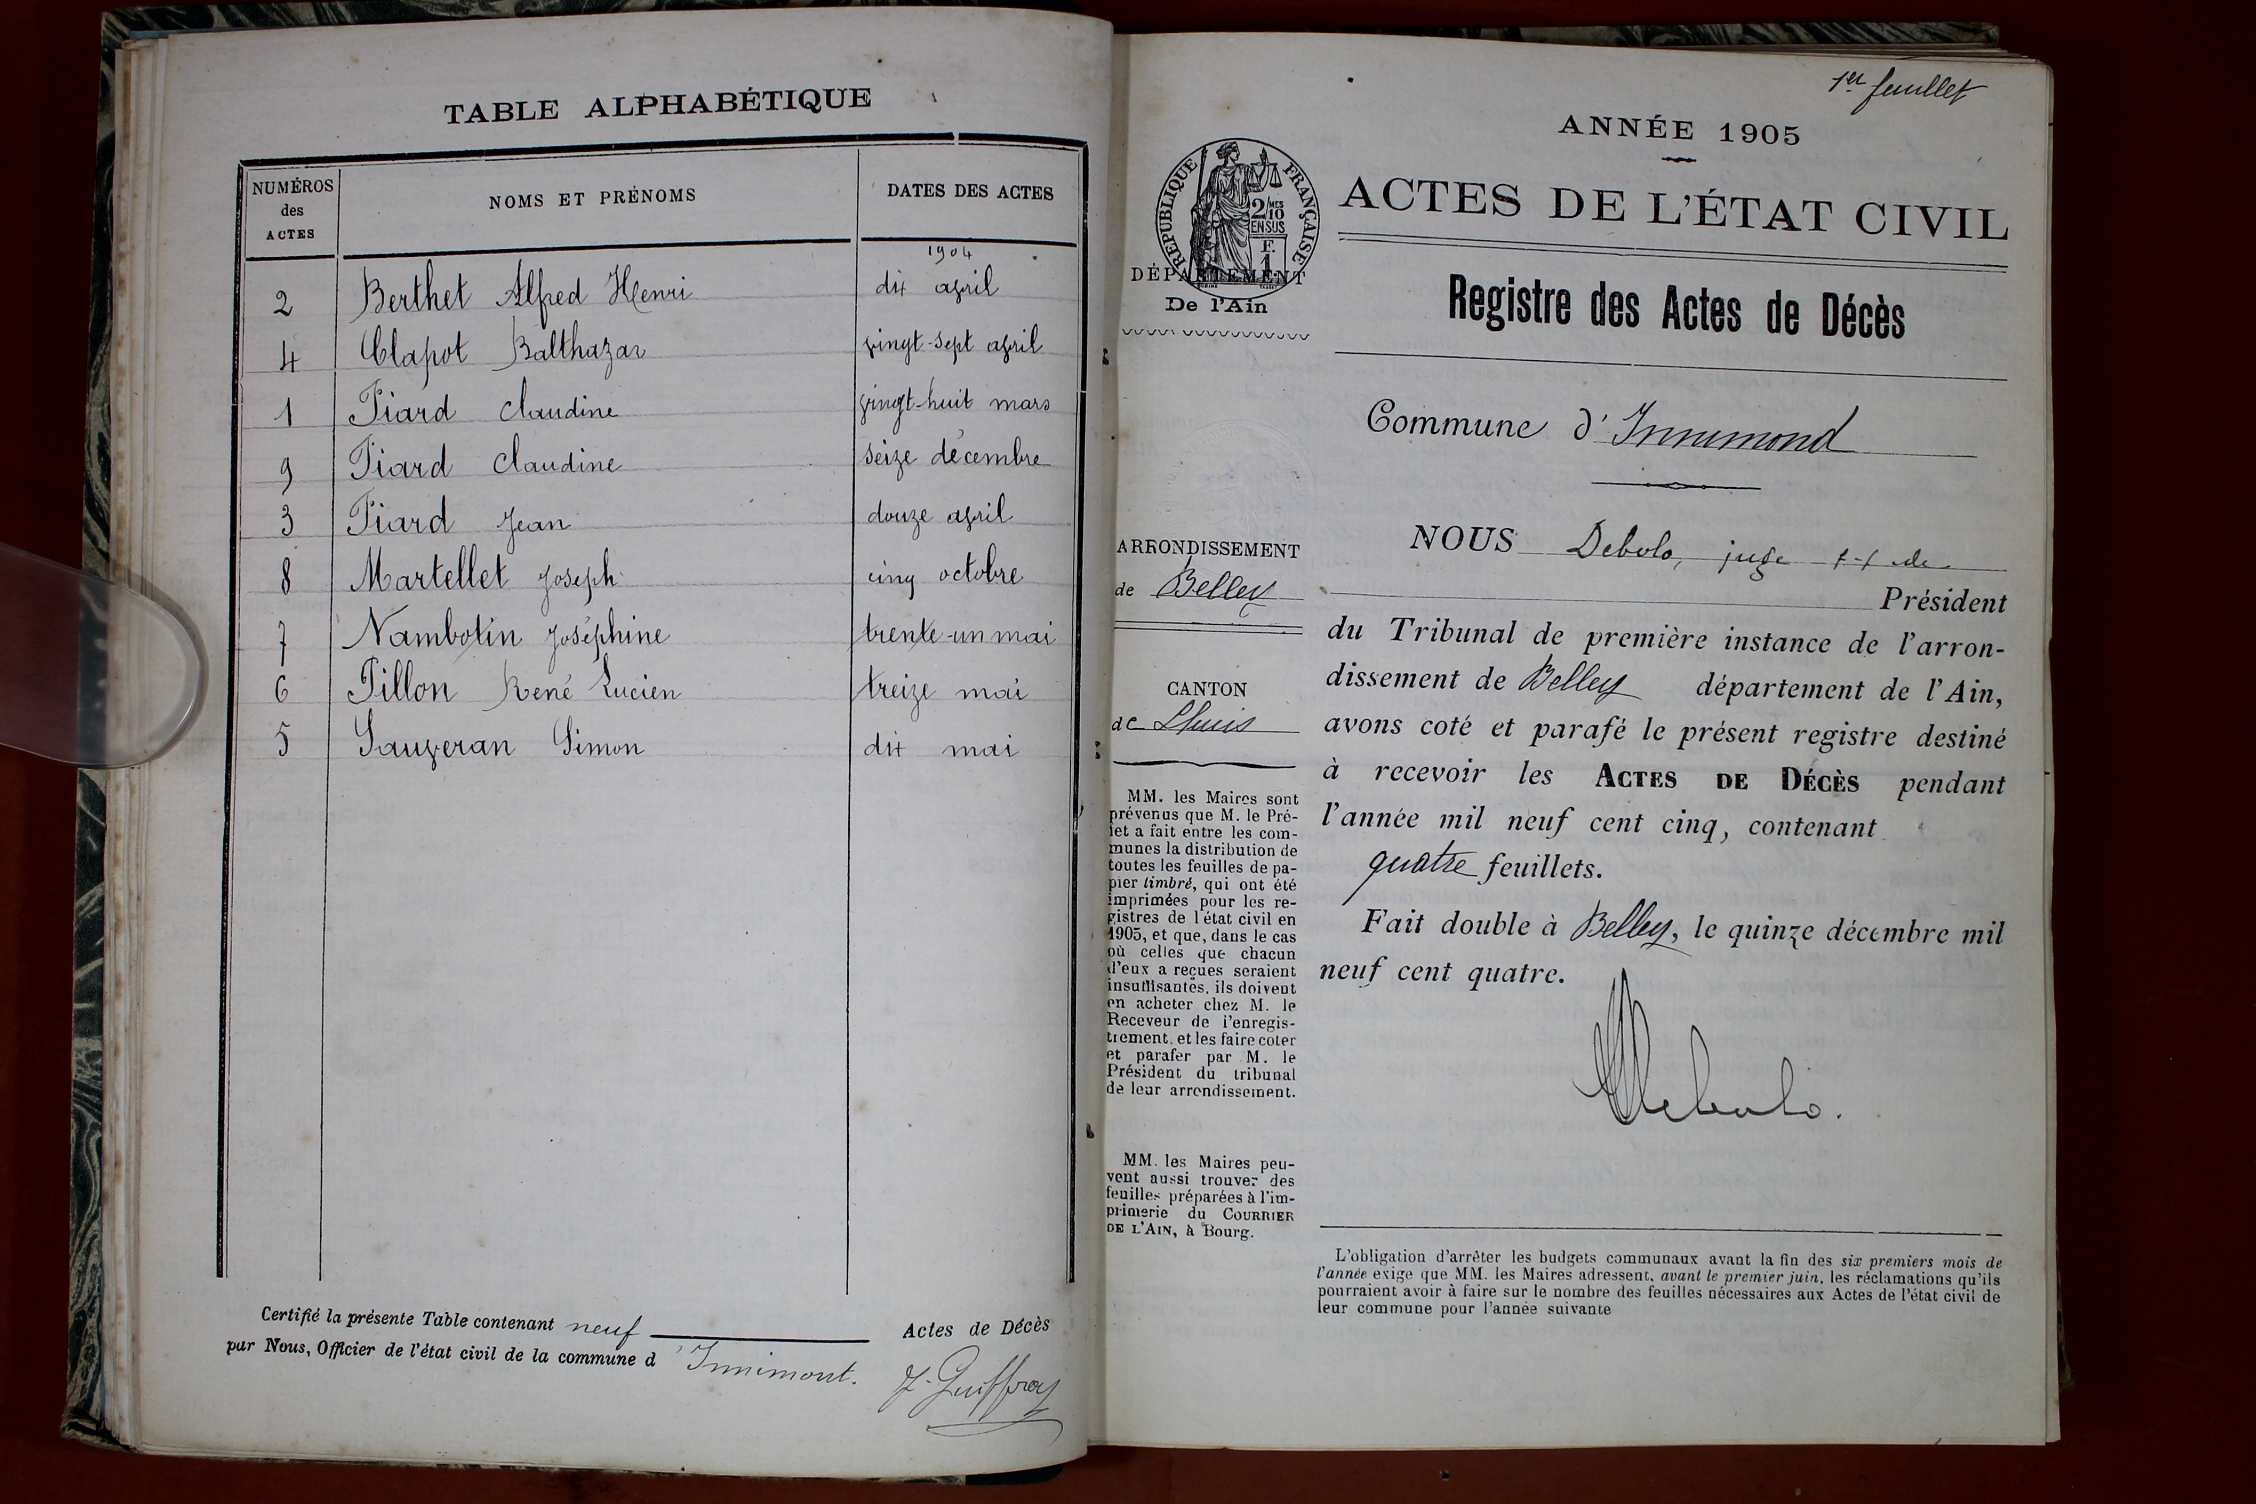 TABLE ALPHABÉTIQUE
NUMÉROS des ACTES
NOMS ET PRÉNOMS
DATES DES ACTES
1904
2 Berthet Alfred Henri dix avril
4 Clapot Balthazar vingt-sept avril
1 Piard Claudine vingt-huit mars
9 Piard Claudine seize décembre
3 Piard Jean douze avril
8 Martellet Joseph cinq octobre
7 Nambotin Joséphine trente-un mai
6 Pillon René Lucien treize mai
5 Sauzeran Simon dix mai
Certifié la présente Table contenant neuf Actes de Décès
par Nous, Officier de l'état civil de la commune d'Innimont.
J. Guiffray
1er feuillet
ANNÉE 1905
RÉPUBLIQUE FRANÇAISE
2/10
MES
EN SUS
F.
1
ACTES DE L'ÉTAT CIVIL
DÉPARTEMENT
De l'Ain
Registre des Actes de Décès
Commune d'Innimond
ARRONDISSEMENT
de Belley
CANTON
de Lhuis
MM. les Maires sont
prévenus que M. le Pré-
fet a fait entre les com-
munes la distribution de
toutes les feuilles de pa-
pier timbré, qui ont été
imprimées pour les re-
gistres de l'état civil en
1905, et que, dans le cas
où celles que chacun
d'eux a reçues seraient
insuffisantes, ils doivent
en acheter chez M. le
Receveur de l'enregis-
trement, et les faire coter
et parafer par M. le
Président du tribunal
de leur arrondissement.
MM. les Maires peu-
vent aussi trouver des
feuilles préparées à l'im-
primerie du COURRIER
DE L'AIN, à Bourg.
NOUS Debolo, juge ff de
Président
du Tribunal de première instance de l'arron-
dissement de Belley département de l'Ain,
avons coté et parafé le présent registre destiné
à recevoir les ACTES DE DÉCÈS pendant
l'année mil neuf cent cinq, contenant
quatre feuillets.
Fait double à Belley, le quinze décembre mil
neuf cent quatre.
Debolo.
L'obligation d'arrêter les budgets communaux avant la fin des six premiers mois de
l'année exige que MM. les Maires adressent, avant le premier juin, les réclamations qu'ils
pourraient avoir à faire sur le nombre des feuilles nécessaires aux Actes de l'état civil de
leur commune pour l'année suivante